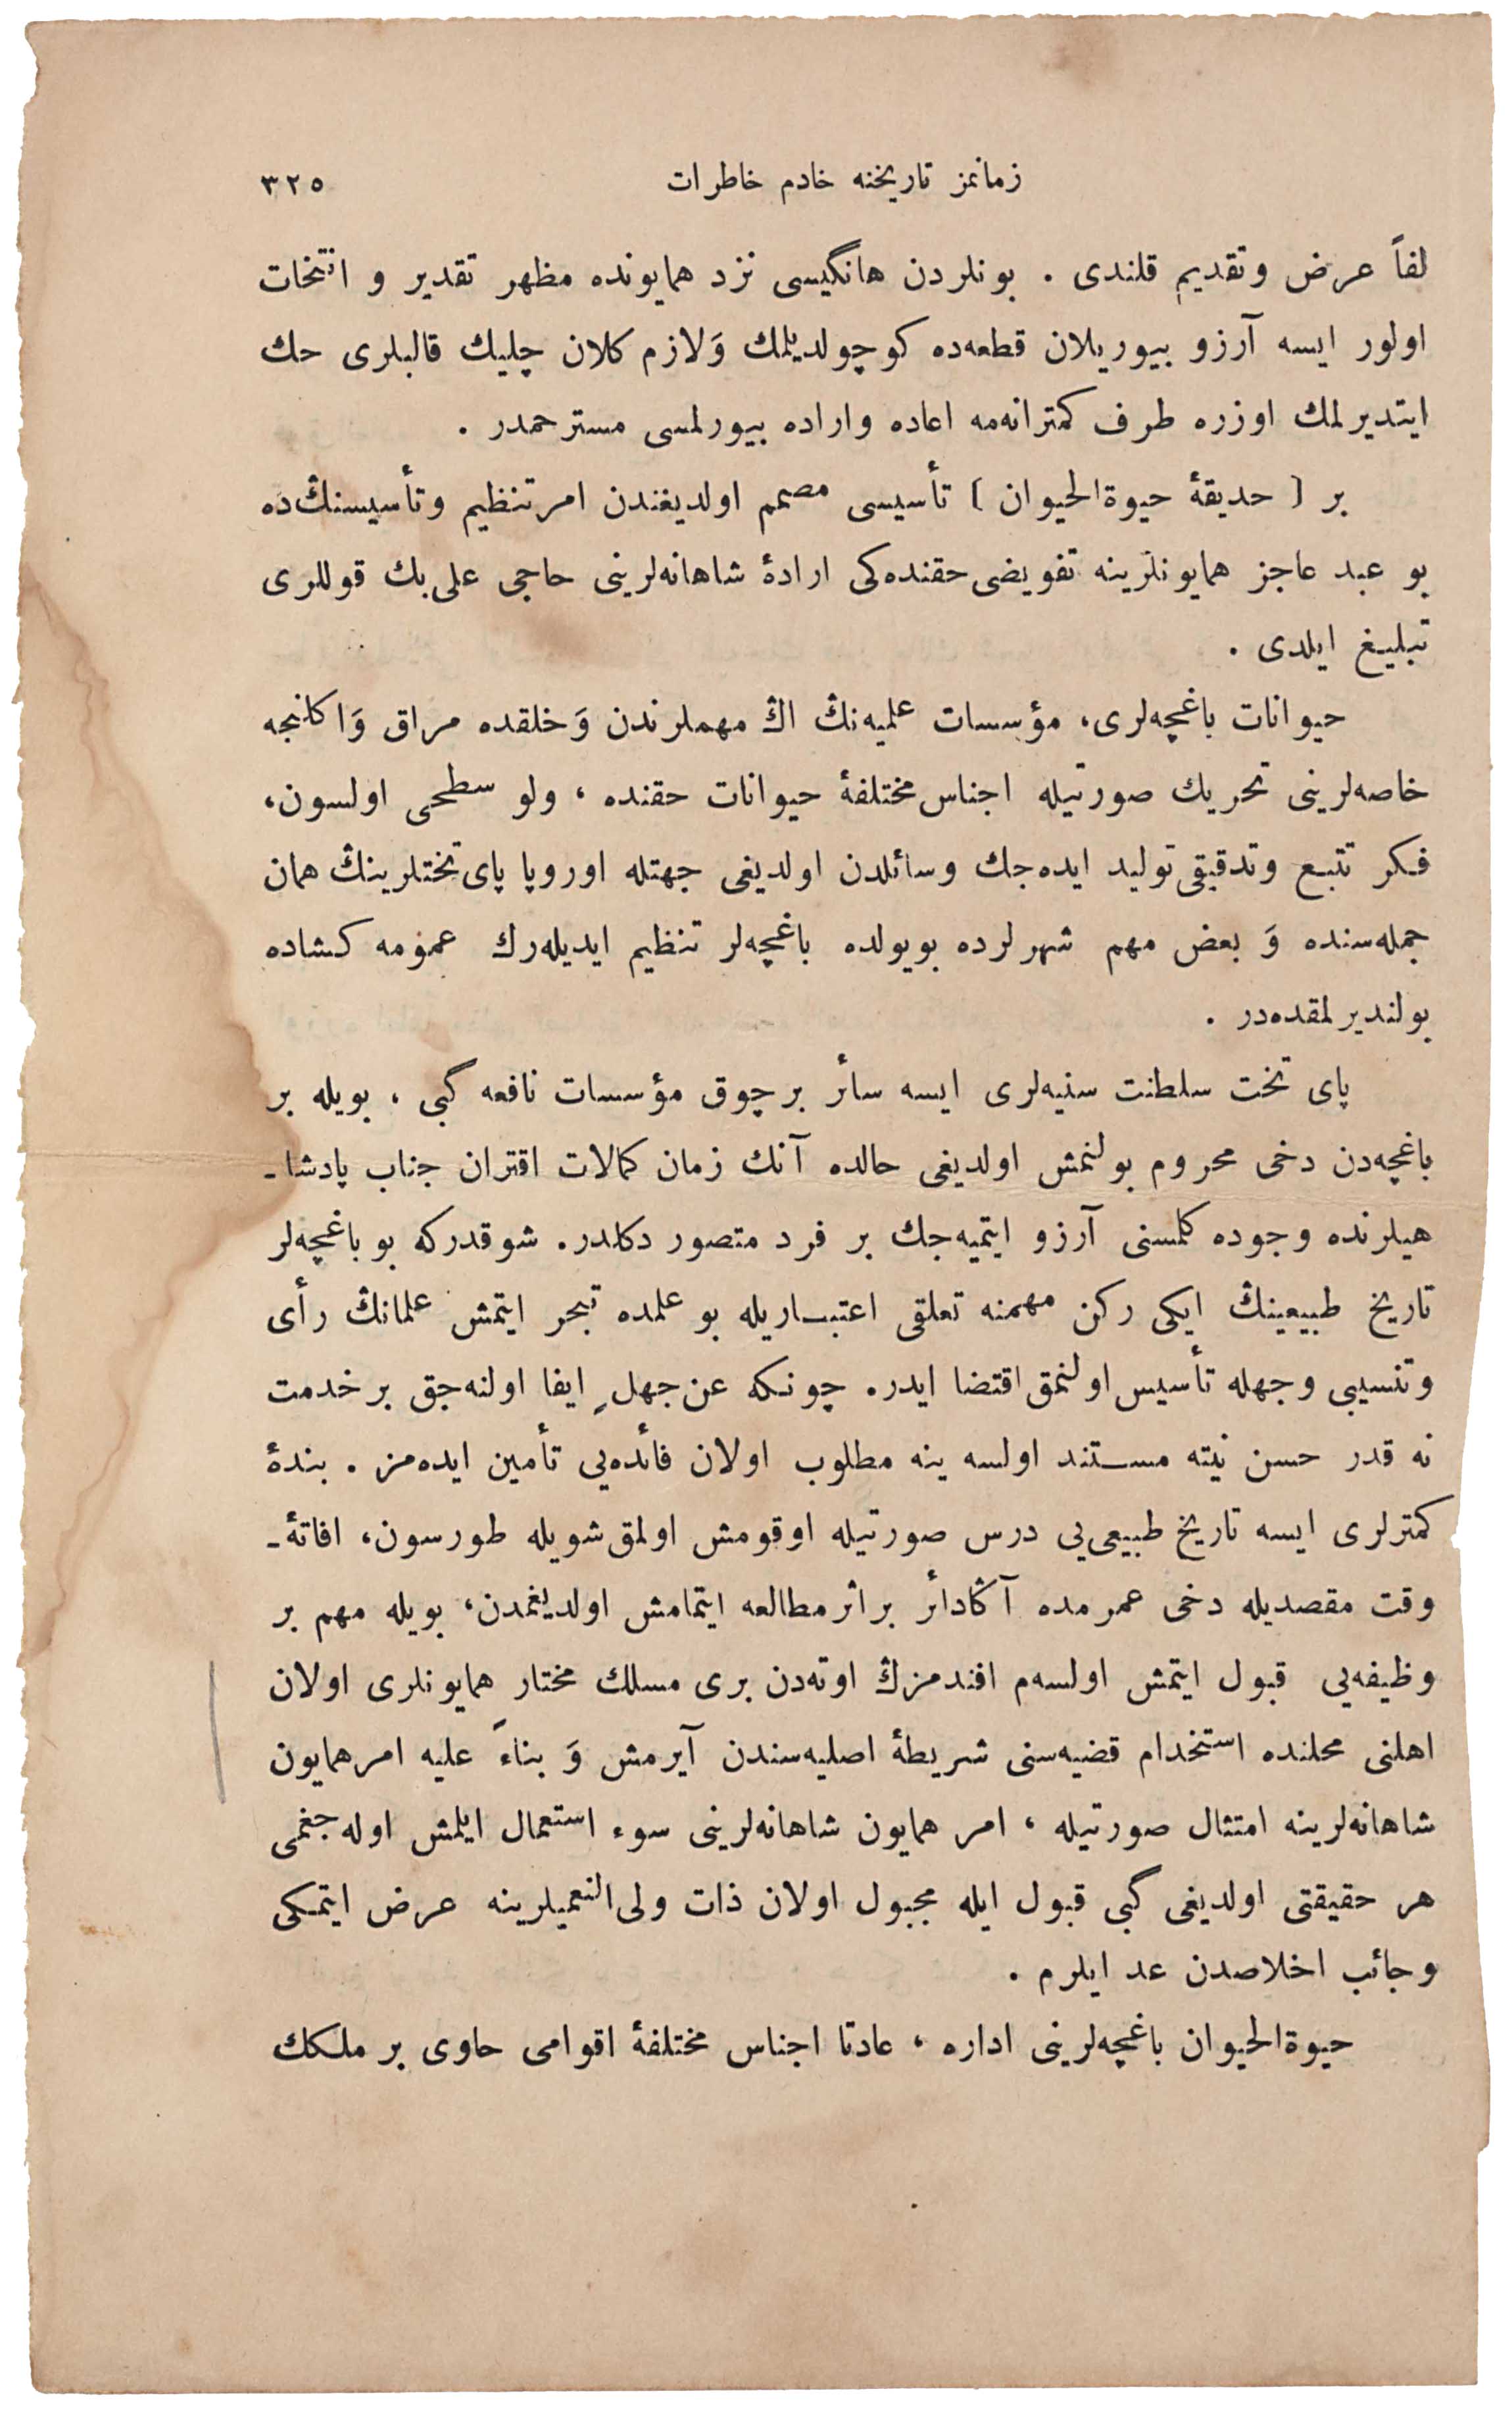 زمانمز تاریخنه خادم خاطرات ٣٢٥
لفاً عرض وتقدیم قلندی . بونلردن هانگیسی نزد همایونده مظهر تقدیر و انتخات
اولور ایسه آرزو بیوریلان قطعه‌ده کوچولدیلمك وَلازم کلان چلیك قالبلری حك
ایتدیرلمك اوزره طرف کمترانه‌مه اعاده واراده بیورلمسی مسترحمدر .
بر [ حدیقۀ حیوة‌الحیوان ] تأسیسی مصمم اولدیغندن امر تنظیم وتأسیسنڭ‌ده
بو عبد عاجز همایونلرینه تفویضی حقنده‌کی ارادۀ شاهانه‌لرینی حاجی علی بك قوللری
تبلیغ ایلدی .
حیوانات باغچه‌لری، مؤسسات علمیه‌نڭ اڭ مهملرندن وَخلقده مراق وَاکلنجه
خاصه‌لرینی تحریك صورتیله اجناس مختلفۀ حیوانات حقنده ، ولو سطحی اولسون،
فکر تتبع وتدقیقی تولید ایده‌جك وسائلدن اولدیغی جهتله اوروپا پای تختلرینڭ همان
جمله‌سنده وَ بعض مهم شهرلرده بویولده باغچه‌لر تنظیم ایدیله‌رك عمومه کشاده
بولندیرلمقده‌در .
پای تخت سلطنت سنیه‌لری ایسه سائر برچوق مؤسسات نافعه گبی ، بویله بر
باغچه‌دن دخی محروم بولنمش اولدیغی حالده آنك زمان کمالات اقتران جناب پادشا-
هیلرنده وجوده کلمسنی آرزو ایتمیه‌جك بر فرد متصور دکلدر. شوقدرکه بو باغچه‌لر
تاریخ طبیعینڭ ایکی رکن مهمنه تعلقی اعتباریله بو علمده تبحر ایتمش علمانڭ رأی
وتنسیبی وجهله تأسیس اولنمق اقتضا ایدر. چونکه عن جهلٍ ایفا اولنه‌جق برخدمت
نه قدر حسن نیته مستند اولسه ینه مطلوب اولان فائده‌یی تأمین ایده‌مز . بندۀ
کمترلری ایسه تاریخ طبیعی‌یی درس صورتیله اوقومش اولمق شویله طورسون، افاتۀ-
وقت مقصدیله دخی عمرمده آڭادائر براثر مطالعه ایتمامش اولدیغمدن، بویله مهم بر
وظیفه‌یی قبول ایتمش اولسه‌م افندمزڭ اوته‌دن بری مسلك مختار همایونلری اولان
اهلنی محلنده استخدام قضیه‌سنی شریطۀ اصلیه‌سندن آیرمش وَ بناءً علیه امر همایون
شاهانه‌لرینه امتثال صورتیله ، امر همایون شاهانه‌لرینی سوء استعمال ایلمش اوله‌جغمی
هر حقیقتی اولدیغی گبی قبول ایله مجبول اولان ذات ولی‌النعمیلرینه عرض ایتمکی
وجائب اخلاصدن عد ایلرم .
حیوة‌الحیوان باغچه‌لرینی اداره ، عادتا اجناس مختلفۀ اقوامی حاوی بر ملکك